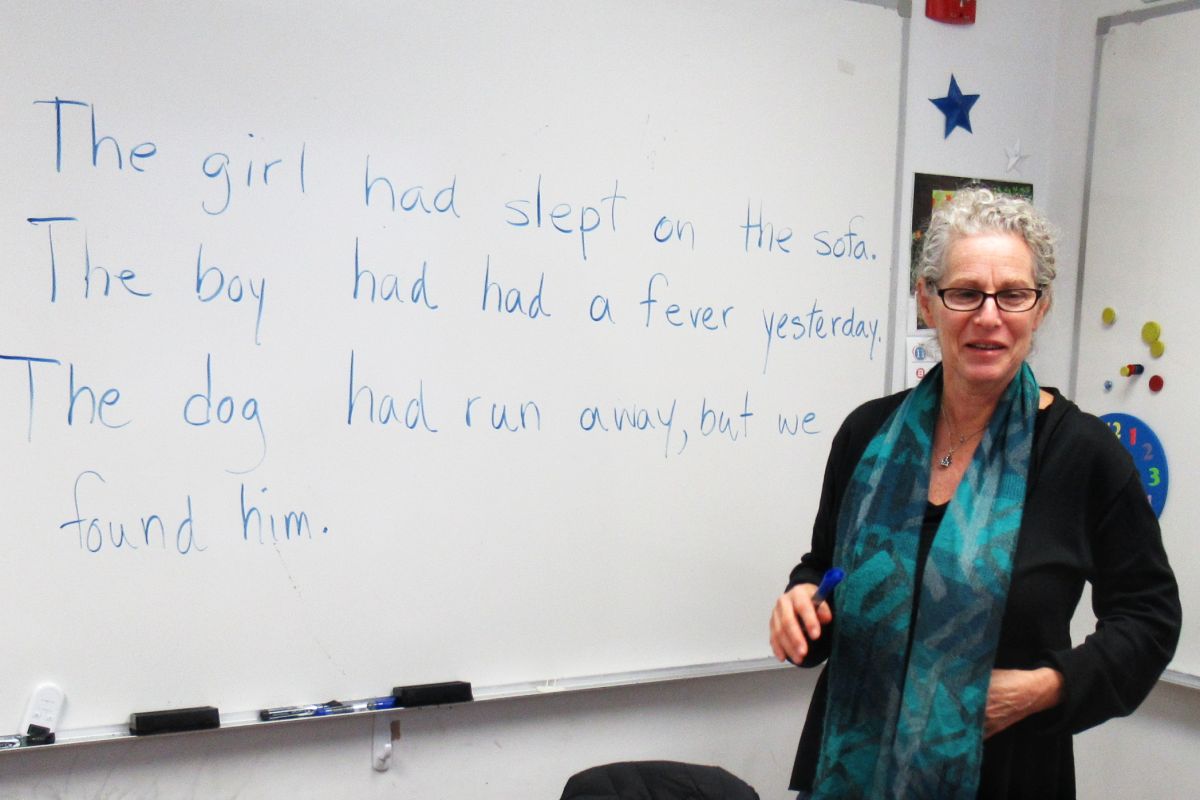 The girl had slept on the sofa.
The boy had had a fever yesterday.
The dog had run away, but we
found him.
11
8
12
1
2
3